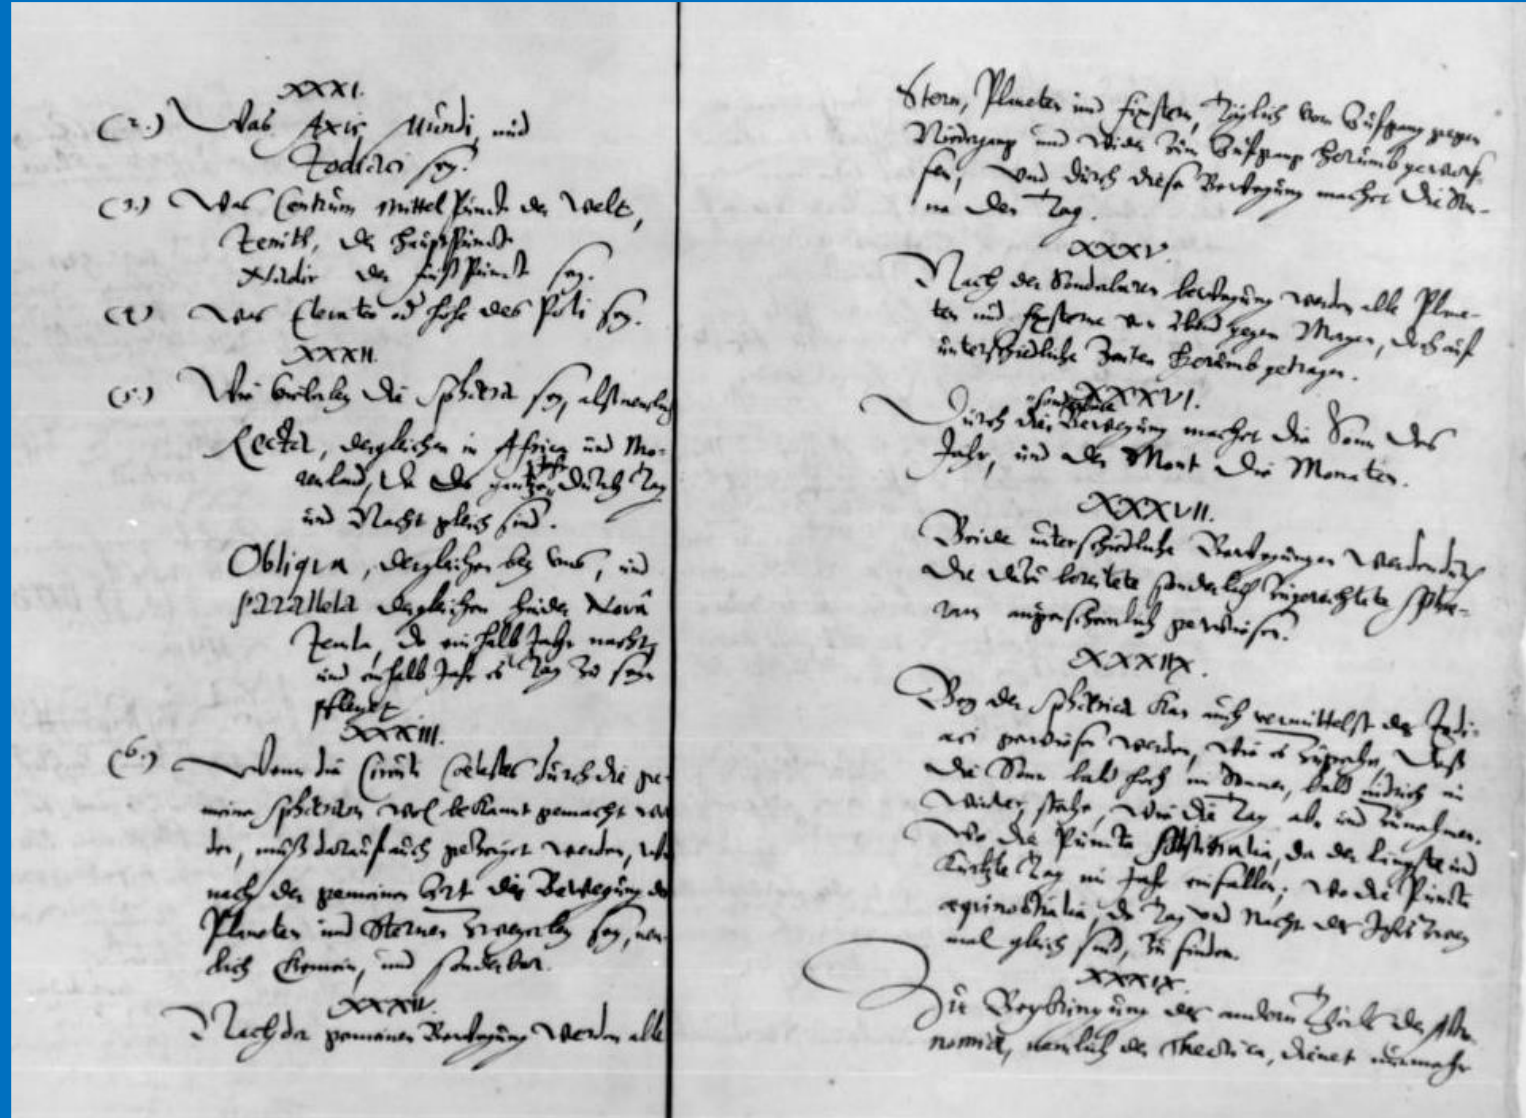 XXXI.
(2.) Was Axis Mundi, und
Zodiaci sey.
(3.) Was Centrum mittel Punct der Welt,
Zenith, der haupt Punct
Nadir der fuß Punct sey.
(4) Was Elevatio od hohe des Poli sey.
XXXII.
(5.) Wie vielerley die Sphaera sey, alß nemlich
Recta, dergleichen in Africa und Mo-
renland, da das gantze Jahr durch Tag
und Nacht gleich sind.
Obliqua, dergleichen bey uns, und
parallela dergleichen hinder Nova
Zembla, da ein halb Jahr nacht,
und ein halb Jahr es Tag zu seyn
pfleget
XXXIII.
(6.) Wenn die Circuli Coelestes durch die ge-
meine Sphaeram wol bekannt gemacht wor
den, muß darauf auch gezeiget werden, wie
nach der gemeinen Art die Bewegung der
Planeten und Sternen zweyerley sey, nem-
lich Gemein, und sonderbar.
XXXIV.
Nach der gemeinen Bewegung werden alle
Stern, Planeten und Fixstern, täglich vom Aufgang gegen
Niedergang und wider zum Aufgang herumb geworf-
fen, und durch diese Bewegung machet die Son-
ne den Tag.
XXXV.
Nach der Sonderbaren bewegung werden alle Plane-
ten und Fixsterne von Abend gegen Morgen, doch auf
unterschiedliche Zeiten herumb getragen.
XXXVI.
sonderbare
Durch diese Bewegung machet die Sonn das
Jahr, und der Mont die Monaten.
XXXVII.
Beide unterschiedliche Bewegungen werden durch
die dazu bereitete sonderlich zugerichtete Sphae-
ram augenscheinlich gewiesen.
XXXIIX.
Bey der Sphaerica kan auch vermittelst des Zodi-
aci gewiesen werden, wie es zugehe, daß
die Sonn bald hoch im Sommer, bald nidrich im
Winter, stehe, wie die Tag ab- und zunehmen.
Wo die Puncta Solstitialia, da der längste und
kürtzte Tag im Jahr einfallen; wo die Puncta
aequinoctialia, da Tag und Nacht des Jahrs zwey
mal gleich sind, zu finden.
XXXIX.
Die Beybringung des andern Theils der Astro-
nomiae, nemlich der Theorica, dienet nunmehr